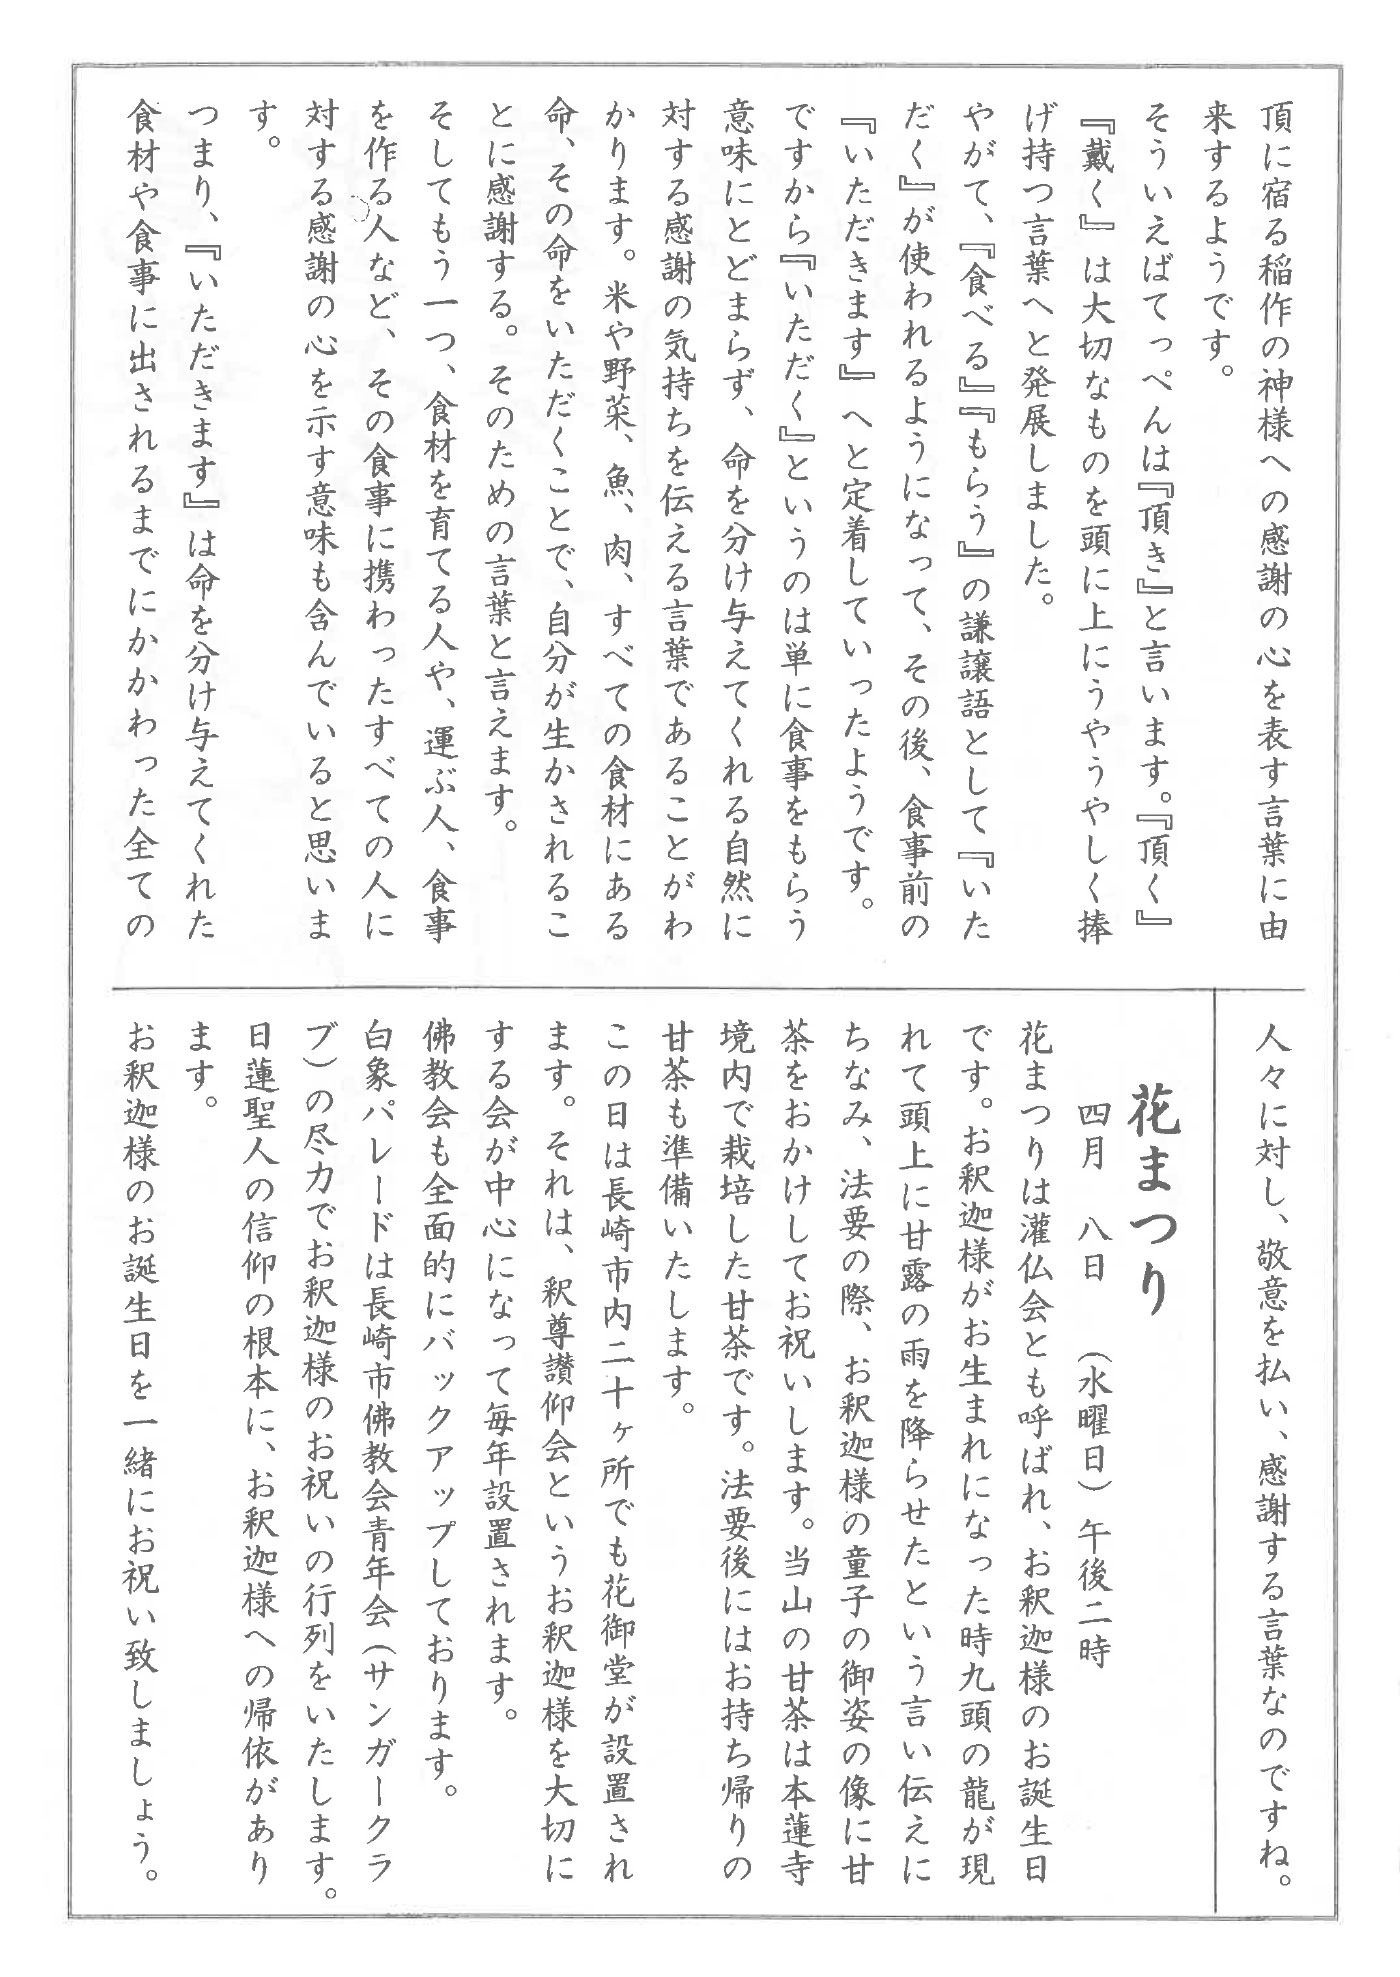 頂に宿る稲作の神様への感謝の心を表す言葉に由
来するようです。
そういえばてっぺんは『頂き』と言います。『頂く』
『戴く』は大切なものを頭に上にうやうやしく捧
げ持つ言葉へと発展しました。
やがて、『食べる』『もらう』の謙譲語として『いた
だく』が使われるようになって、その後、食事前の
『いただきます』へと定着していったようです。
ですから『いただく』というのは単に食事をもらう
意味にとどまらず、命を分け与えてくれる自然に
対する感謝の気持ちを伝える言葉であることがわ
かります。米や野菜、魚、肉、すべての食材にある
命、その命をいただくことで、自分が生かされるこ
とに感謝する。そのための言葉と言えます。
そしてもう一つ、食材を育てる人や、運ぶ人、食事
を作る人など、その食事に携わったすべての人に
対する感謝の心を示す意味も含んでいると思いま
す。
つまり、『いただきます』は命を分け与えてくれた
食材や食事に出されるまでにかかわった全ての
人々に対し、敬意を払い、感謝する言葉なのですね。
花まつり
四月 八日 (水曜日)午後二時
花まつりは灌仏会とも呼ばれ、お釈迦様のお誕生日
です。お釈迦様がお生まれになった時九頭の龍が現
れて頭上に甘露の雨を降らせたという言い伝えに
ちなみ、法要の際、お釈迦様の童子の御姿の像に甘
茶をおかけしてお祝いします。当山の甘茶は本蓮寺
境内で栽培した甘茶です。法要後にはお持ち帰りの
甘茶も準備いたします。
この日は長崎市内二十ヶ所でも花御堂が設置され
ます。それは、釈尊讃仰会というお釈迦様を大切に
する会が中心になって毎年設置されます。
佛教会も全面的にバックアップしております。
白象パレードは長崎市佛教会青年会(サンガークラ
ブ)の尽力でお釈迦様のお祝いの行列をいたします。
日蓮聖人の信仰の根本に、お釈迦様への帰依があり
ます。
お釈迦様のお誕生日を一緒にお祝い致しましょう。